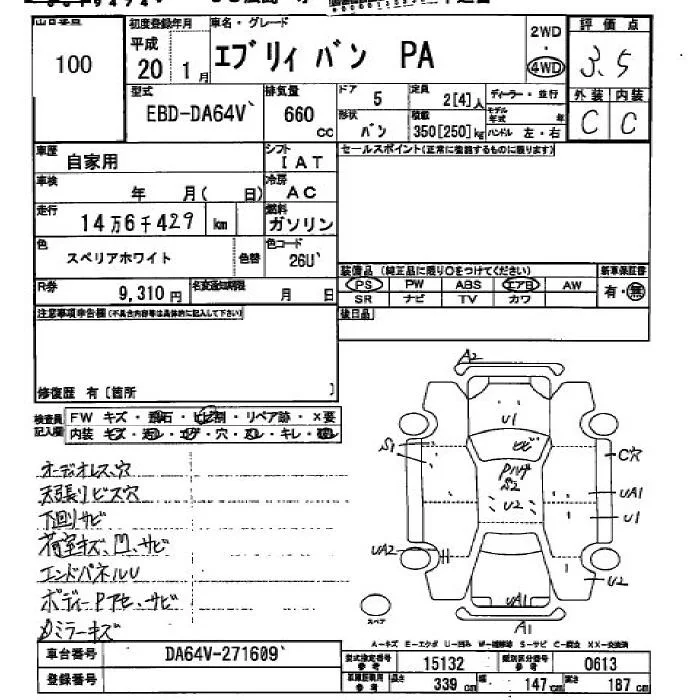 初度登録年月
車名・グレード
評価点
100
平成
20 1月
エブリィ バン PA
2WD
4WD
3.5
型式
EBD-DA64V
排気量
660 cc
ドア 5
定員 2[4]人
ディーラー・並行
形状 バン
積載 350[250]kg
モデル年式 年
ハンドル 左・右
外装 内装
C C
車歴
自家用
シフト
IAT
セールスポイント(正常に機能するものに限ります)
車検
年 月( 日)
冷房
AC
走行
14万6千429 km
燃料
ガソリン
色
スペリアホワイト
色替
色コード
26U
装備品(純正品に限り○をつけてください)
新車保証書
PS PW ABS エアB AW
有・無
SR ナビ TV カワ
R券
9,310円
名変通知期限
月 日
注意事項申告欄(不具合内容等は具体的に記入して下さい)
後日品
修復歴 有〔箇所
検査員記入欄
FW キズ・飛石・ヒビ割・リペア跡・×要
内装 キズ・汚れ・コゲ・穴・スレ・キレ・
オーディオレス穴
天張りビス穴
下回りサビ
荷室キズ、凹、サビ
エンドパネルU
ボディーPアセ、サビ
ミラーキズ
A2
U1
S1
ヒビ
Pハゲ
S2
U2
C穴
UA1
U1
UA2
U2
UA1
A1
スペア
A-キズ E-エクボ U-凹み W-補修跡 S-サビ C-腐食 XX-交換済
車台番号
DA64V-271609
型式指定番号
15132
類別区分番号
0613
登録番号
長さ 339 cm
幅 147 cm
高さ 187 cm